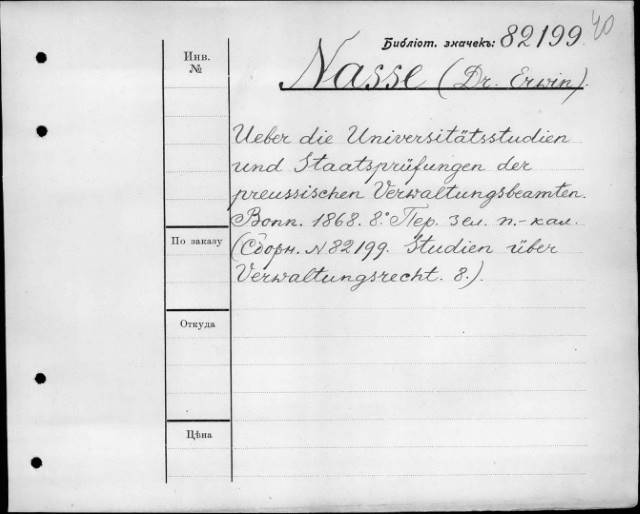 Библiот. значекъ: 82199
40
Инв.
№
Nasse (Dr. Erwin).
Ueber die Universitätsstudien
und Staatsprüfungen der
preussischen Verwaltungsbeamten.
Bonn. 1868. 8.° Пер. зел. п.-кал.
(Сборн. № 82199. Studien über
Verwaltungsrecht. 8.)
По заказу
Откуда
Цѣна